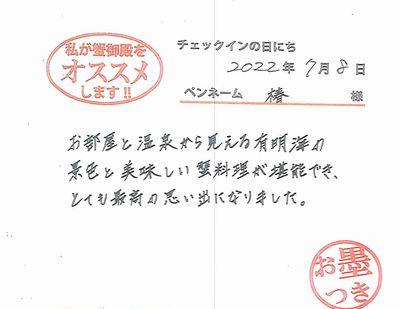 私が蟹御殿を
オススメ
します!!
チェックインの日にち
2022年 7月 8日
ペンネーム 椿 様
お部屋と温泉から見える有明海の
景色と美味しい蟹料理が堪能でき、
とても最高の思い出になりました。
お墨
つき